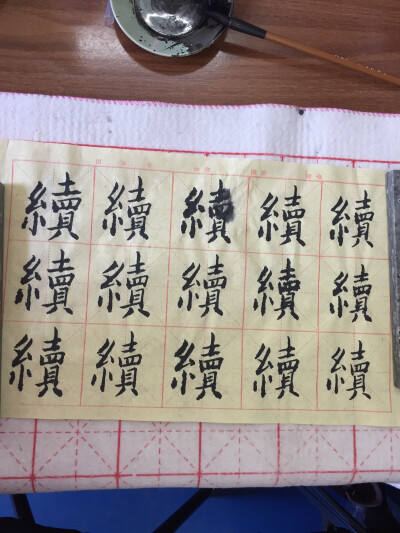 續續續續續
續續續續續
續續續續續